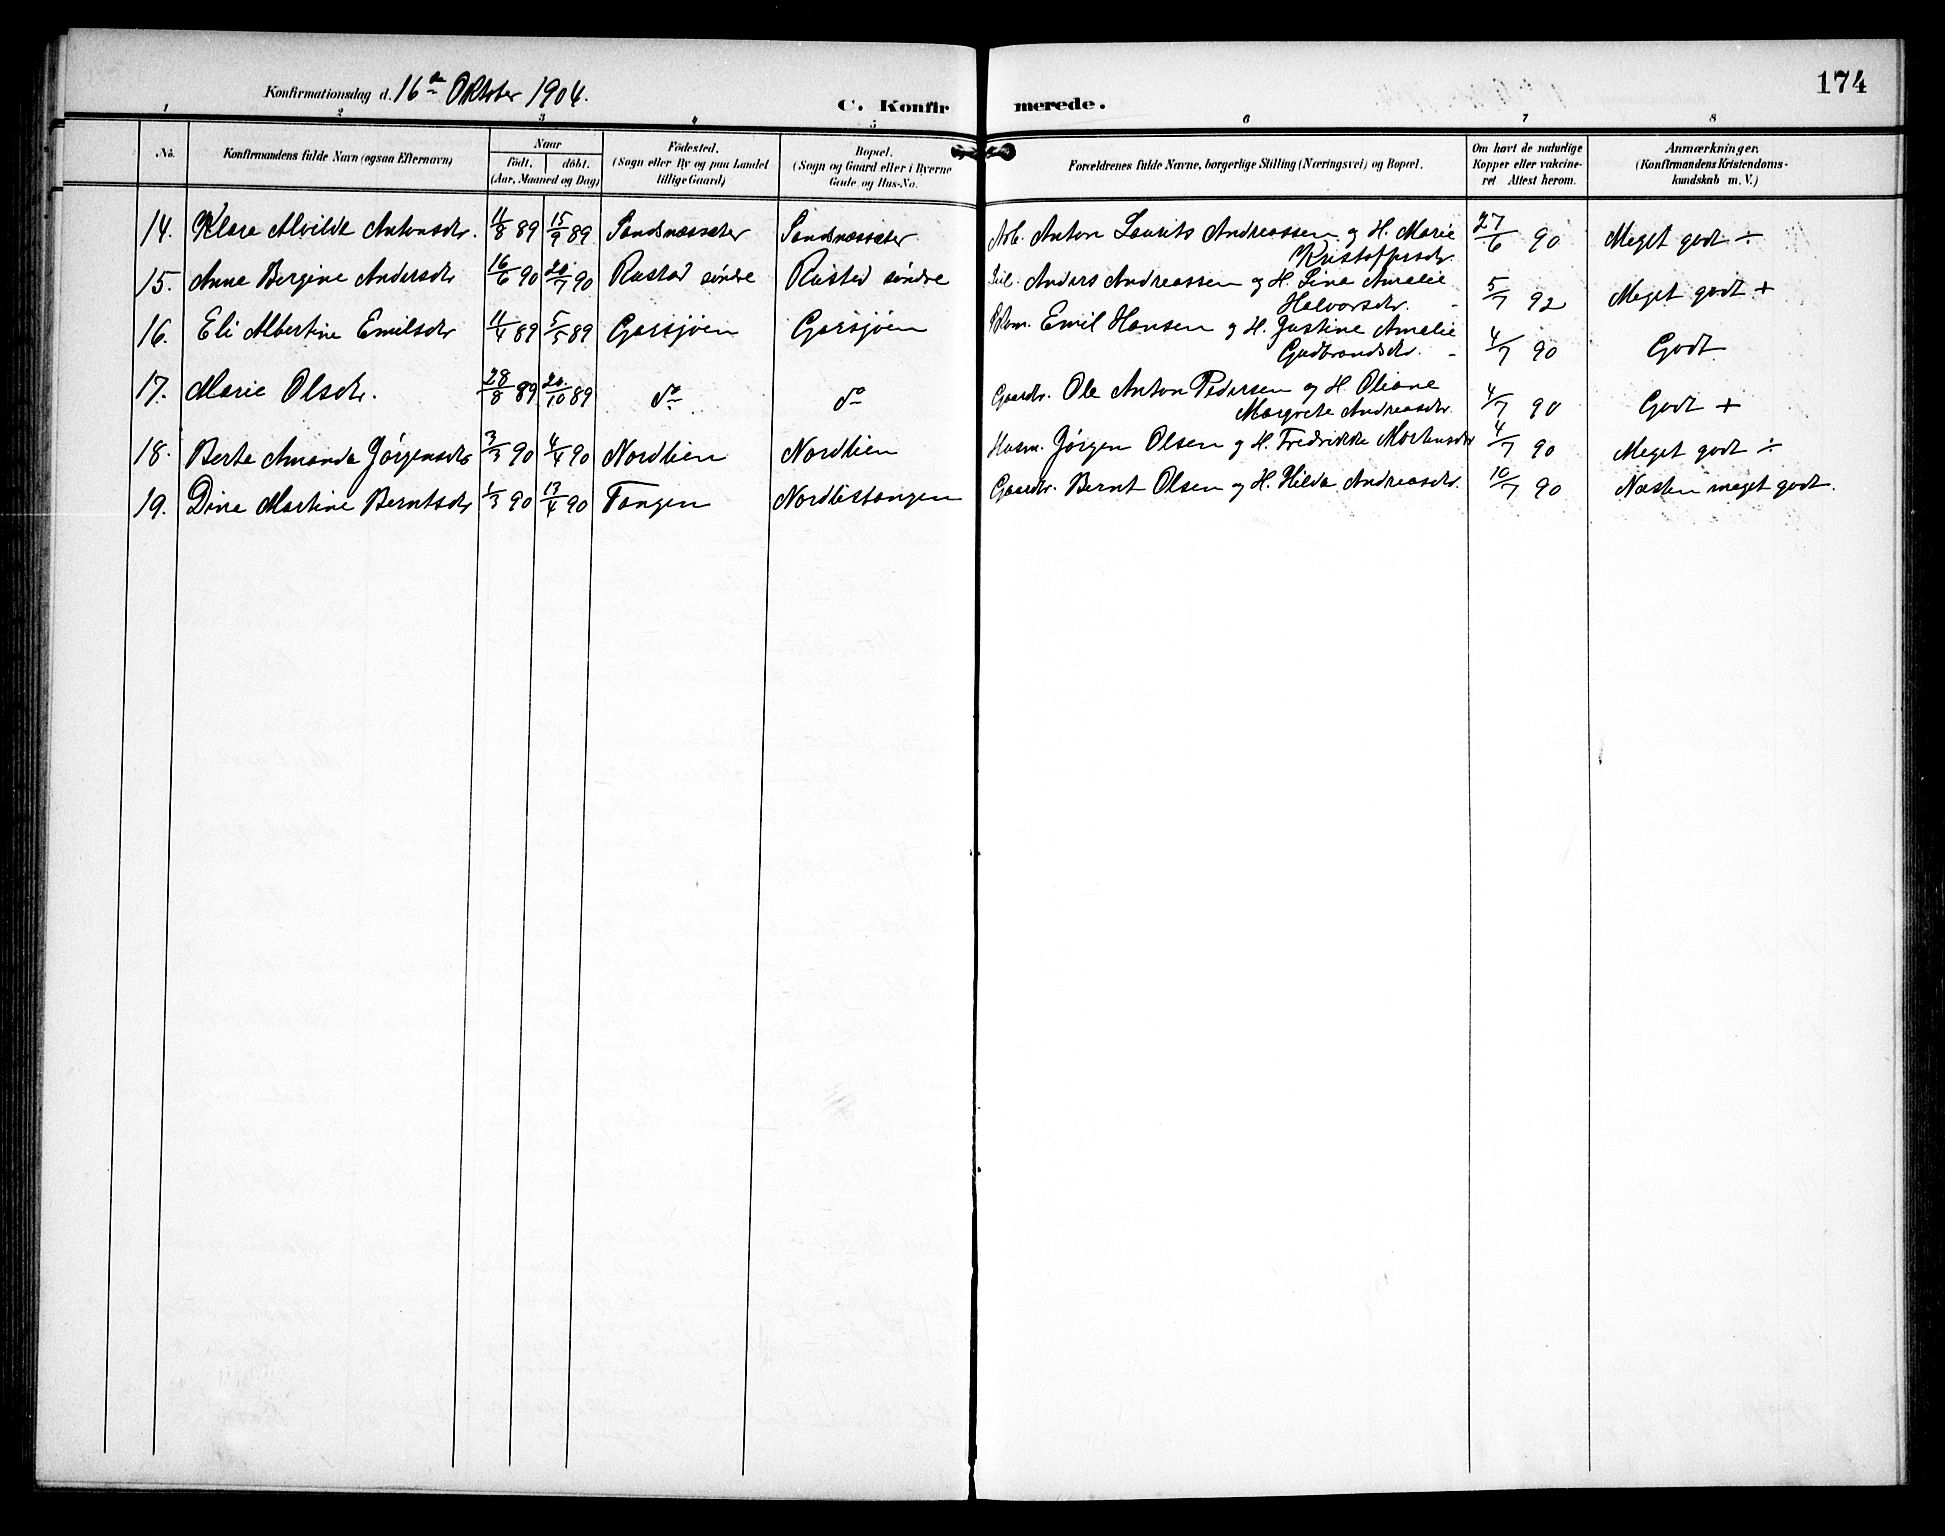 174
Konfirmationsdag d. 16de Oktober 1904.
C. Konfirmerede.
1 2 3 4 5 6 7 8
No. Konfirmandens fulde Navn (ogsaa Efternavn) Naar Födt, döbt. (Aar, Maaned og Dag) Födested. (Sogn eller By og paa Landet tillige Gaard) Bopæl. (Sogn og Gaard eller i Byerne Gade og Hus-No. Forældrenes fulde Navne, borgerlige Stilling (Næringsvei) og Bopæl. Om havt de naturlige Kopper eller vakcineret Attest herom. Anmærkninger. (Konfirmandens Kristendomskundskab m. V.)
14. Klara Alvilde Antonsdr. 11/8 89 15/9 89 Sandsnæssæter Sandsnæssæter Arb. Anton Laurits Andreassen og H. Marie 27/6 90 Meget godt ÷
Kristoffersdr.
15. Anna Bergine Andersdr 16/6 90 20/7 90 Rustad söndre Rustad söndre Anders Andreassen og H. Lina Amalie 5/7 92 Meget godt +
Halvorsdr.
16. Eli Albertine Emilsdr 11/4 89 5/5 89 Garsjöen Garsjöen Emil Hansen og H. Justine Amalie 4/7 90 Godt
Gudbrandsdr.
17. Marie Olsdr. 28/8 89 20/10 89 do do Gaardbr. Ole Anton Pedersen og H. Oliane 4/7 90 Godt +
Margrete Andreasdr.
18. Berte Amanda Jørgensdr 3/3 90 4/4 90 Nordlien Nordlien Husm. Jørgen Olsen og H. Fredrikke Mortensdr 4/7 90 Meget godt ÷
19. Dina Martine Berntsdr 1/3 90 13/4 90 Tangen Nordlistangen Gaardbr. Bernt Olsen og H. Hilda Andreasdr. 10/7 90 Næsten meget godt.